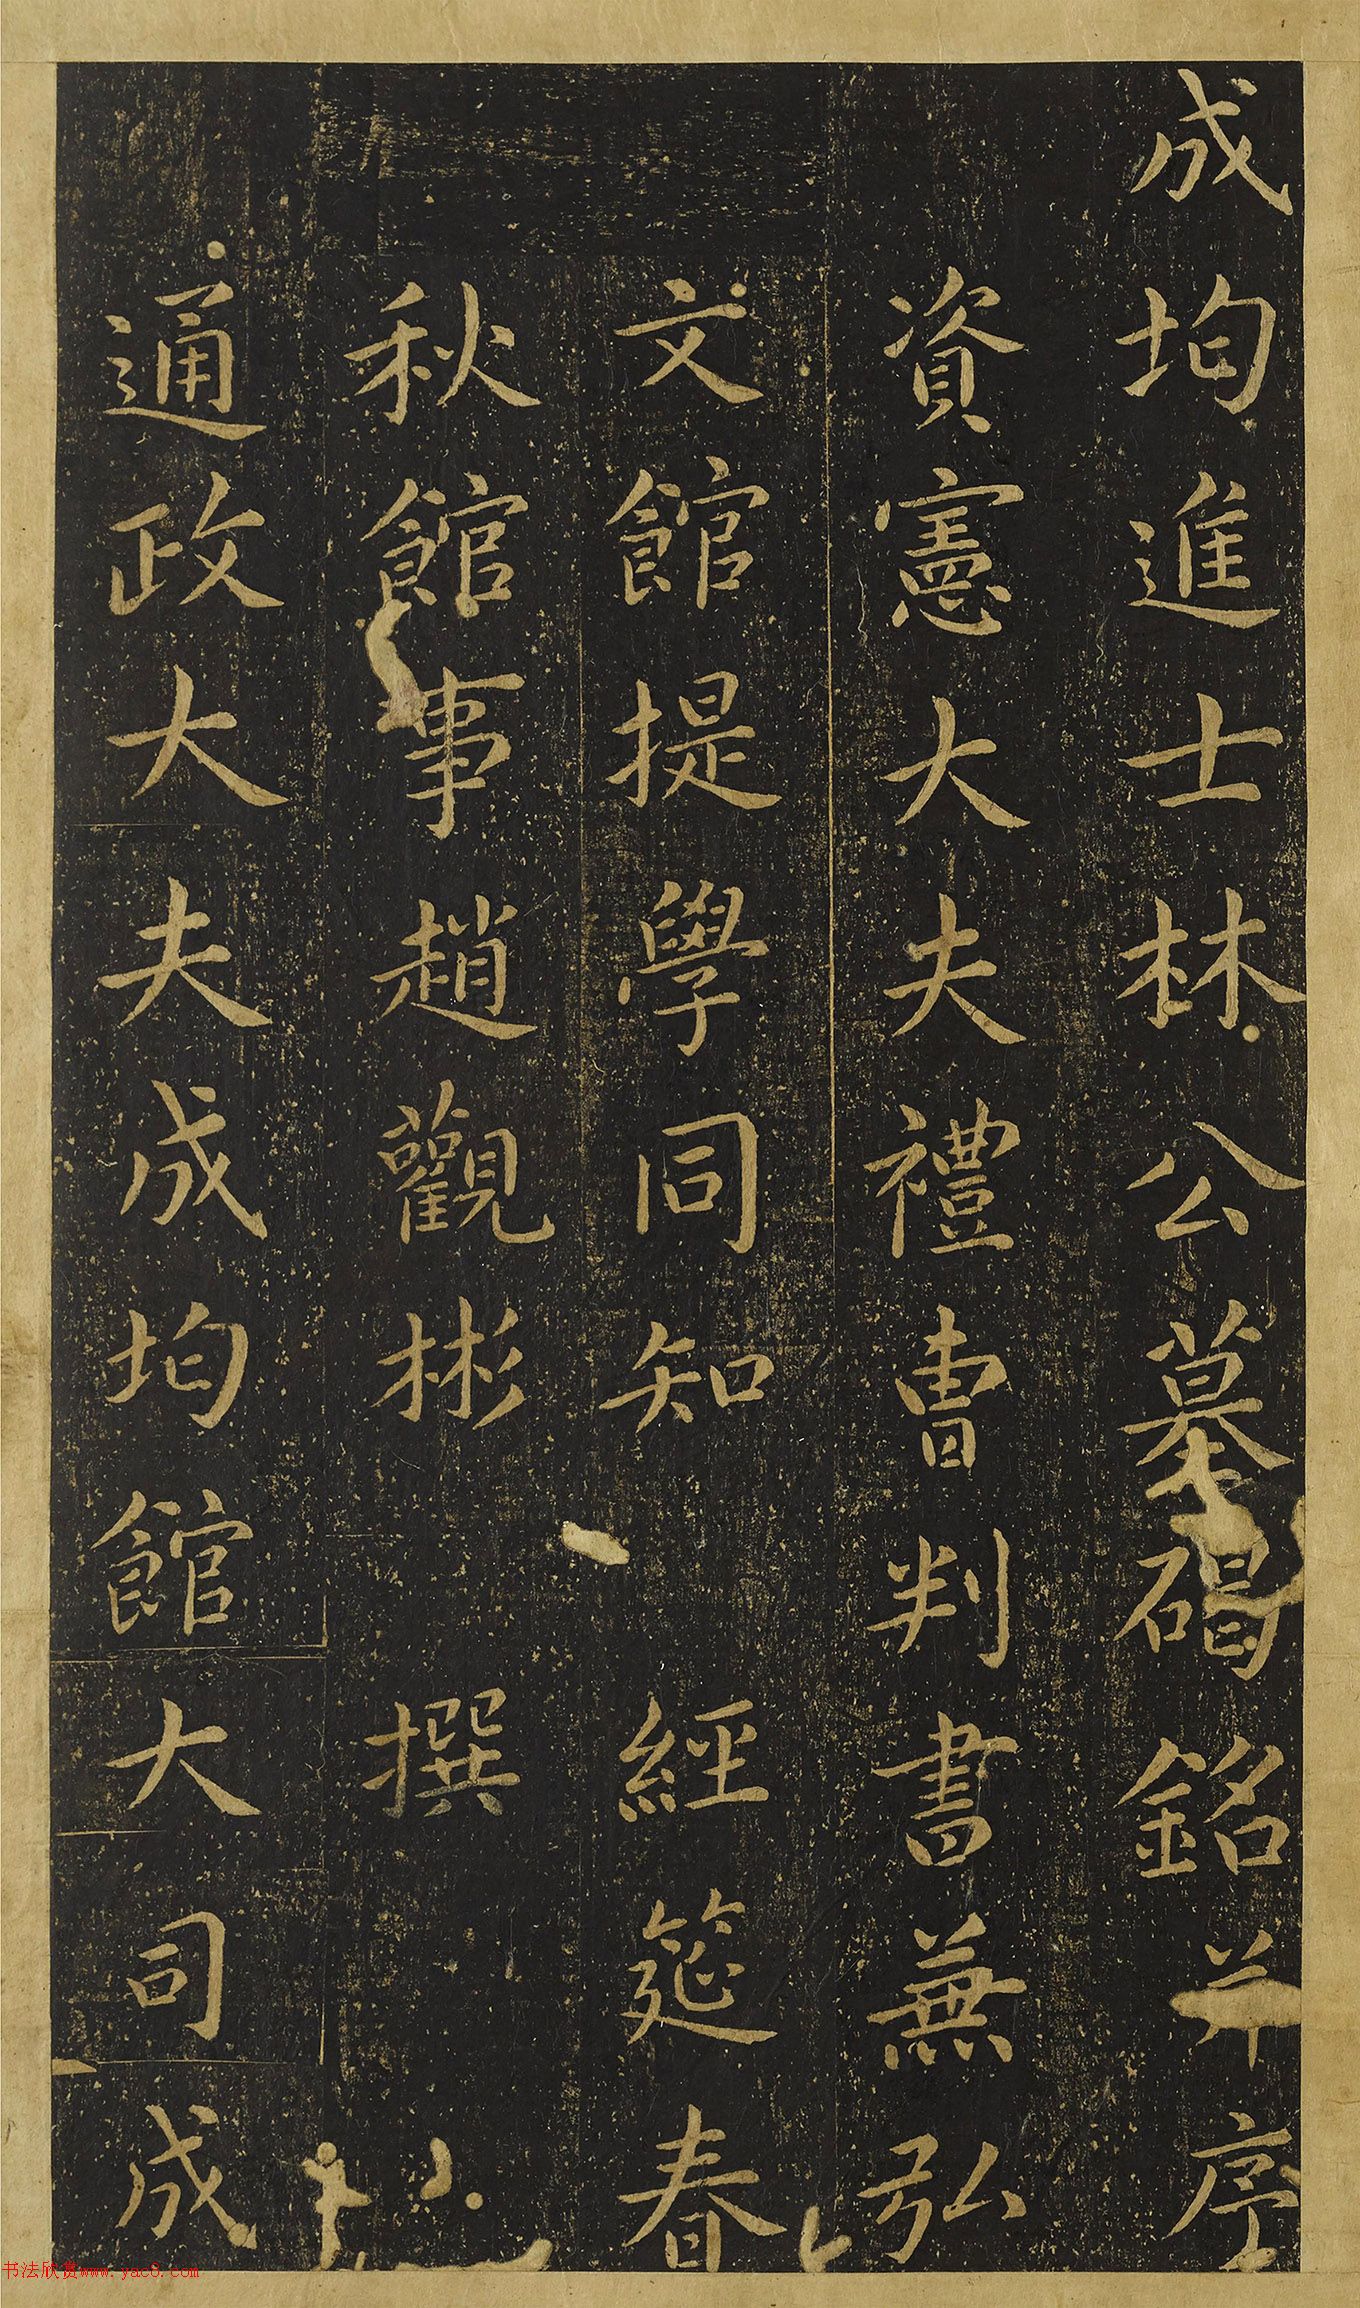 成均進士林公墓碣銘并序
資憲大夫禮曹判書兼弘
文館提學同知 經筵春
秋館事趙觀彬 撰
通政大夫成均館大司成
书法欣赏www.yac8.com